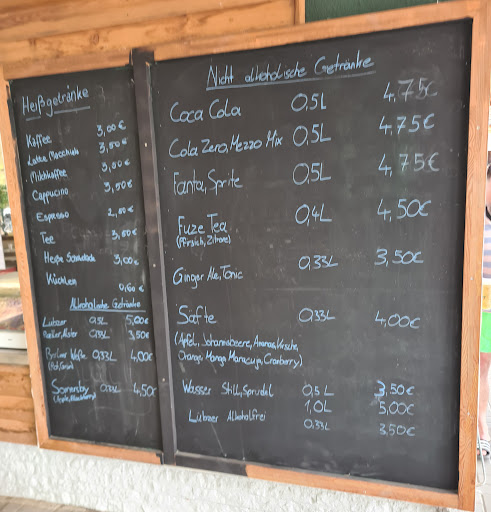 Heißgetränke
Kaffee 3,00€
Latte Macchiato 3,50€
Milchkaffee 3,00€
Cappucino 3,50€
Espresso 2,00€
Tee 3,00€
Heiße Schokolade 3,00€
Küchlein 0,60€
Alkoholische Getränke
Lübzer 0,5L 5,00€
Radler, Alster 0,33L 3,50€
Berliner Weiße 0,33L 4,00€
(Rot, Grün)
Somersby 0,33L 4,50€
(Apple, Blackberry)
Nicht alkoholische Getränke
Coca Cola 0,5L 4,75€
Cola Zero, Mezzo Mix 0,5L 4,75€
Fanta, Sprite 0,5L 4,75€
Fuze Tea 0,4L 4,50€
(Pfirsich, Zitrone)
Ginger Ale, Tonic 0,33L 3,50€
Säfte 0,33L 4,00€
(Apfel, Johannabeere, Ananas, Kirsche,
Orange, Mango Maracuja, Cranberry)
Wasser Still, Sprudel 0,5L 3,50€
1,0L 5,00€
Lübzer Alkoholfrei 0,33L 3,50€